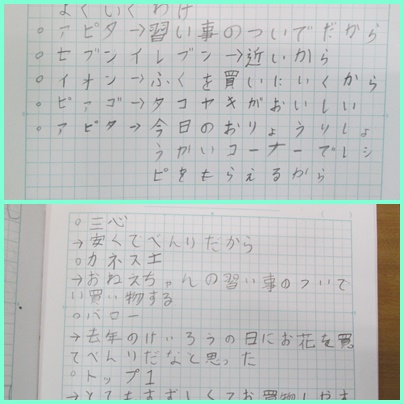 よくいくわけ
○アピタ→習い事のついでだから
○セブンイレブン→近いから
○イオン→ふくを買いにいくから
○ピアゴ→タコヤキがおいしい
○アピタ→今日のおりょうりしょ
うかいコーナーでレシ
ピをもらえるから
○三心
→安くてべんりだから
○カネスエ
→おねえちゃんの習い事のついで
い買い物する
○バロー
→去年のけいろうの日にお花を買
てべんりだなと思った
○トップ1
→とてもすずしくてお買物しやす